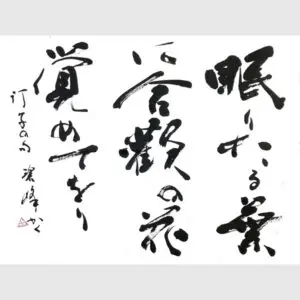 眠りたる葉
に合歓の花
覚めてをり
汀子の句 碧峰かく